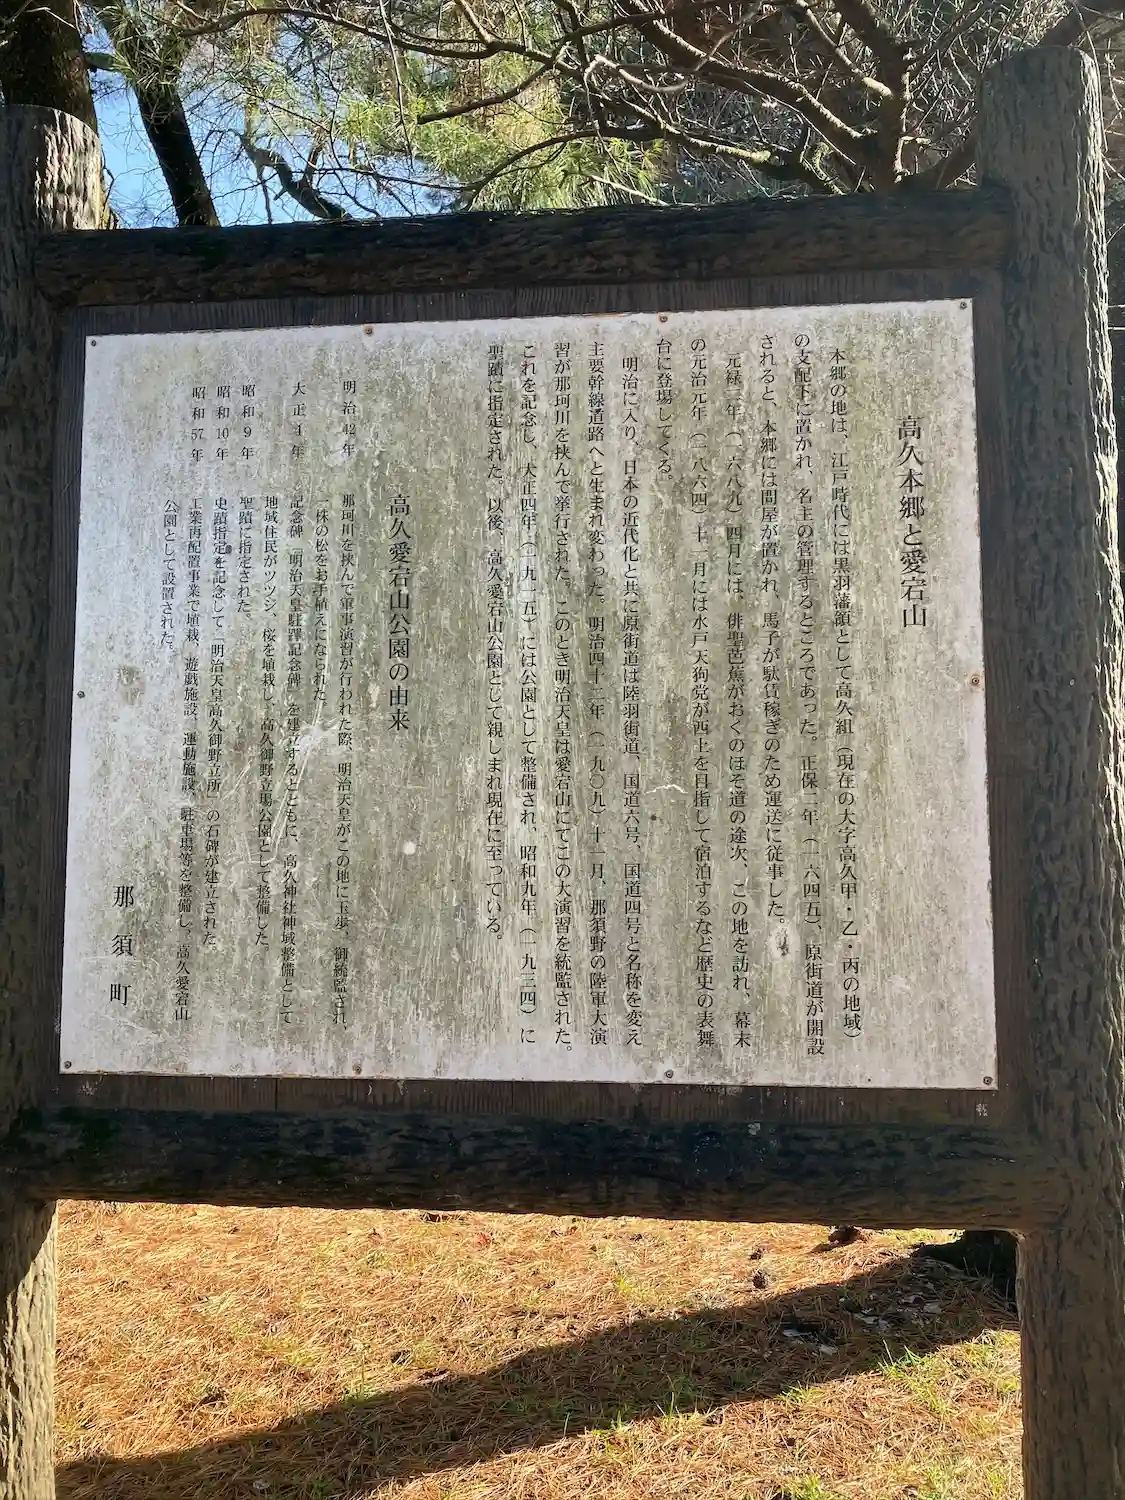 高久本郷と愛宕山
本郷の地は、江戸時代には黒羽藩領として高久組（現在の大字高久甲・乙・丙の地域）
の支配下に置かれ、名主の管理するところであった。正保二年（一六四五）、原街道が開設
されると、本郷には問屋が置かれ、馬子が駄賃稼ぎのため運送に従事した。
元禄二年（一六八九）四月には、俳聖芭蕉がおくのほそ道の途次、この地を訪れ、幕末
の元治元年（一八六四）十一月には水戸天狗党が西上を目指して宿泊するなど歴史の表舞
台に登場してくる。
明治に入り、日本の近代化と共に原街道は陸羽街道、国道六号、国道四号と名称を変え
主要幹線道路へと生まれ変わった。明治四十二年（一九〇九）十一月、那須野の陸軍大演
習が那珂川を挟んで挙行された。このとき明治天皇は愛宕山にてこの大演習を統監された。
これを記念し、大正四年（一九一五）には公園として整備され、昭和九年（一九三四）に
聖蹟に指定された。以後、高久愛宕山公園として親しまれ現在に至っている。
高久愛宕山公園の由来
明治42年 那珂川を挟んで軍事演習が行われた際、明治天皇がこの地に玉歩、御統監され、
一株の松をお手植えになられた。
大正4年 記念碑「明治天皇駐蹕記念碑」を建立するとともに、高久神社神域整備として
地域住民がツツジ、桜を植栽し、高久御野立場公園として整備した。
昭和9年 聖蹟に指定された。
昭和10年 史蹟指定を記念して「明治天皇高久御野立所」の石碑が建立された。
昭和57年 工業再配置事業で植栽、遊戯施設、運動施設、駐車場等を整備し、高久愛宕山
公園として設置された。
那須町